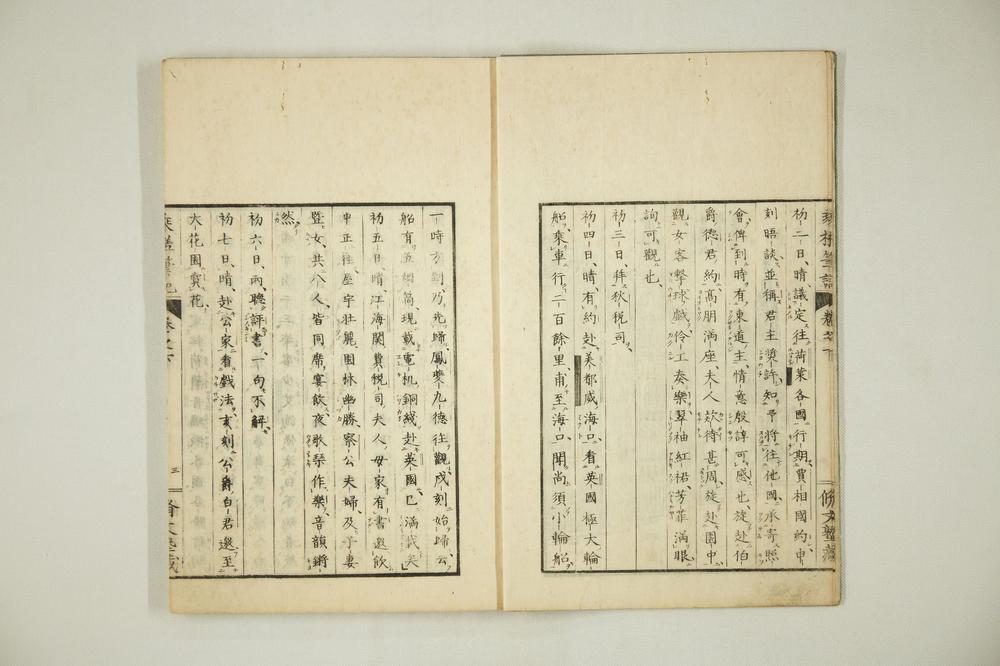 初二日、晴、議定往荷萊各國行期、買相國約申
刻晤談、並稱君主奬許、知予將往他國、承寄照
會、俾到時有東道主、情意殷諄可感也、旋赴伯
爵德君約、高朋滿座、夫人欵待甚周、旋赴園中
觀女客擊球戲、伶工奏樂、翠袖紅裙、芳菲滿眼、
詢可觀也、
初三日、拜狄税司、
初四日、晴、有約赴美都威海口、看英國極大輪
船、乘車行二百餘里、甫至海口、聞尚須小輪船、
一時方到、乃先歸、鳳夔九德往觀、戌刻始歸、云
船有五烟筩、現載電机銅綫赴英國、已滿載矣、
初五日、晴、江海關費税司夫人母家有書邀飲、
申正往、屋宇壯麗、園林幽勝、察公夫婦及予妻
曁女、共八人、皆同席、宴飲、夜歌琴作樂、音韻鏘
然、
初六日、雨、聽評書、一句不解、
初七日、晴、赴公家看戲法、亥刻公爵白君邀、至
大花園賞花、
卷之下
三